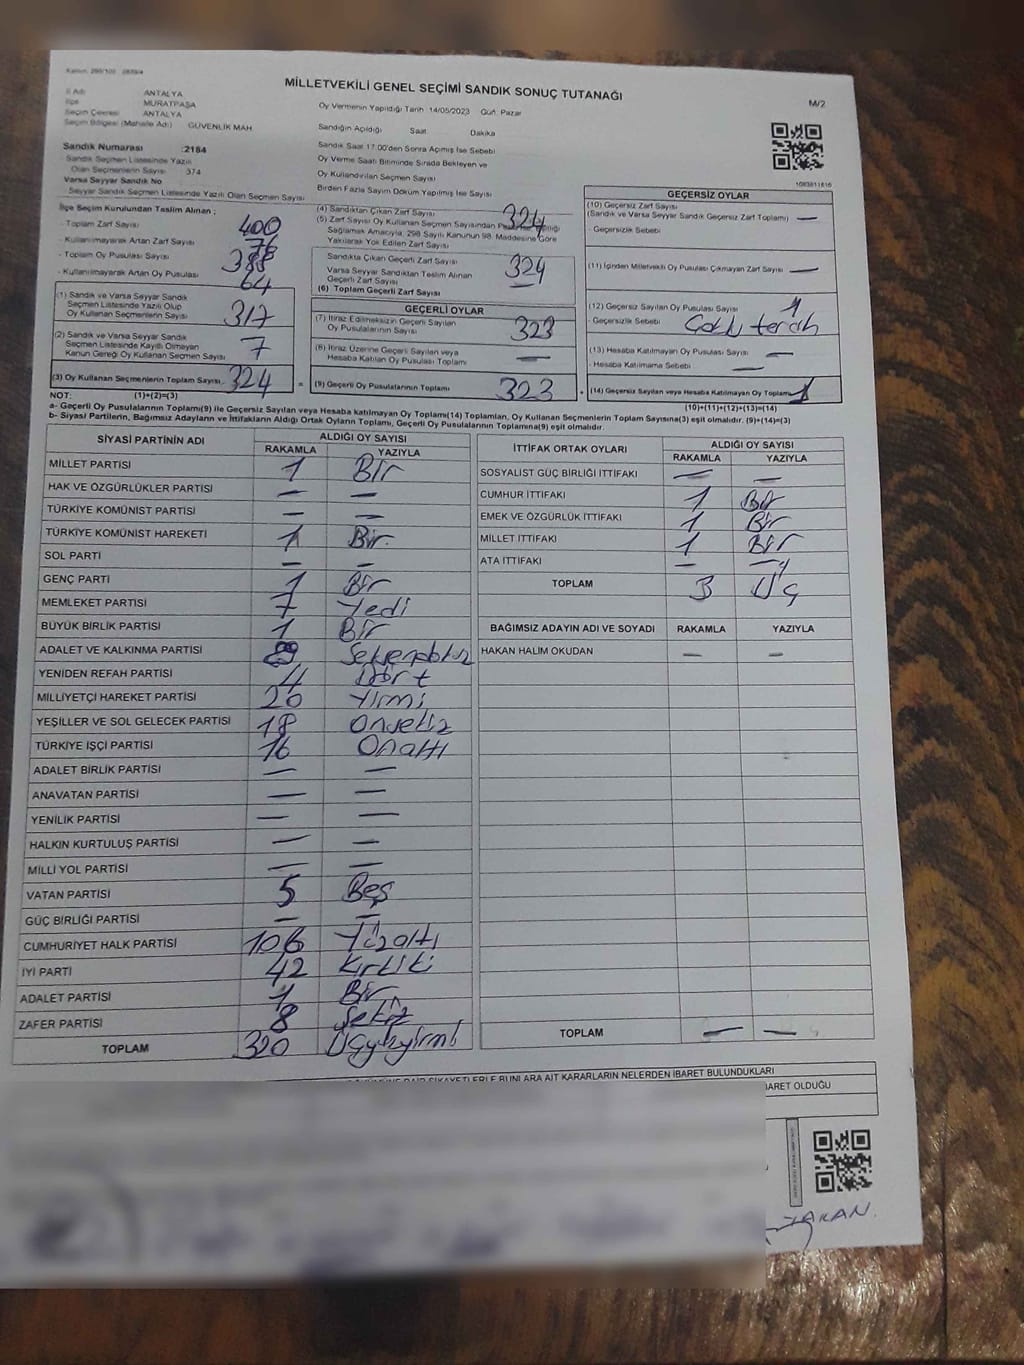 MİLLETVEKİLİ GENEL SEÇİMİ SANDIK SONUÇ TUTANAĞI
M/2
İl Adı ANTALYA
İlçe MURATPAŞA
Seçim Çevresi ANTALYA
Seçim Bölgesi (Mahalle Adı) GÜVENLİK MAH
Sandık Numarası :2184
- Sandık Seçmen Listesinde Yazılı
Olan Seçmenlerin Sayısı 374
Varsa Seyyar Sandık No
- Seyyar Sandık Seçmen Listesinde Yazılı Olan Seçmen Sayısı
Oy Vermenin Yapıldığı Tarih 14/05/2023 Gün Pazar
Sandığın Açıldığı Saat Dakika
Sandık Saat 17:00'den Sonra Açımış İse Sebebi
Oy Verme Saati Bitiminde Sırada Bekleyen ve
Oy Kullandırılan Seçmen Sayısı
Birden Fazla Sayım Döküm Yapılmış İse Sayısı
İlçe Seçim Kurulundan Teslim Alınan ;
- Toplam Zarf Sayısı 400
- Kullanılmayarak Artan Zarf Sayısı 76
- Toplam Oy Pusulası Sayısı 388
- Kullanılmayarak Artan Oy Pusulası 64
(1) Sandık ve Varsa Seyyar Sandık
Seçmen Listesinde Yazılı Olup
Oy Kullanan Seçmenlerin Sayısı 317
(2) Sandık ve Varsa Seyyar Sandık
Seçmen Listesinde Kayıtlı Olmayan
Kanun Gereği Oy Kullanan Seçmen Sayısı 7
(3) Oy Kullanan Seçmenlerin Toplam Sayısı 324
(4) Sandıktan Çıkan Zarf Sayısı 324
(5) Zarf Sayısı Oy Kullanan Seçmen Sayısından
Sağlamak Amacıyla, 298 Sayılı Kanunun 98. Maddesine Göre
Yakılarak Yok Edilen Zarf Sayısı
Sandıkta Çıkan Geçerli Zarf Sayısı 324
Varsa Seyyar Sandıktan Teslim Alınan
Geçerli Zarf Sayısı —
(6) Toplam Geçerli Zarf Sayısı
GEÇERLİ OYLAR
(7) İtiraz Edilmeksizin Geçerli Sayılan
Oy Pusulalarının Sayısı 323
(8) İtiraz Üzerine Geçerli Sayılan veya
Hesaba Katılan Oy Pusulası Toplamı —
(9) Geçerli Oy Pusulalarının Toplamı 323
GEÇERSİZ OYLAR
(10) Geçersiz Zarf Sayısı
(Sandık ve Varsa Seyyar Sandık Geçersiz Zarf Toplamı) —
- Geçersizlik Sebebi
(11) İçinden Milletvekili Oy Pusulası Çıkmayan Zarf Sayısı —
(12) Geçersiz Sayılan Oy Pusulası Sayısı 1
- Geçersizlik Sebebi
(13) Hesaba Katılmayan Oy Pusulası Sayısı —
- Hesaba Katılmama Sebebi —
(14) Geçersiz Sayılan veya Hesaba Katılmayan Oy Toplamı 1
NOT: (1)+(2)=(3) (10)+(11)+(12)+(13)=(14)
a- Geçerli Oy Pusulalarının Toplamı(9) ile Geçersiz Sayılan veya Hesaba katılmayan Oy Toplamı(14) Toplamları, Oy Kullanan Seçmenlerin Toplam Sayısına(3) eşit olmalıdır. (9)+(14)=(3)
b- Siyasi Partilerin, Bağımsız Adayların ve İttifakların Aldığı Ortak Oyların Toplamı, Geçerli Oy Pusulalarının Toplamına(9) eşit olmalıdır.
SİYASİ PARTİNİN ADI ALDIĞI OY SAYISI
RAKAMLA YAZIYLA
MİLLET PARTİSİ 1 Bir
HAK VE ÖZGÜRLÜKLER PARTİSİ — —
TÜRKİYE KOMÜNİST PARTİSİ — —
TÜRKİYE KOMÜNİST HAREKETİ 1 Bir
SOL PARTİ — —
GENÇ PARTİ 1 Bir
MEMLEKET PARTİSİ 7 Yedi
BÜYÜK BİRLİK PARTİSİ 1 Bir
ADALET VE KALKINMA PARTİSİ 89 Seksendokuz
YENİDEN REFAH PARTİSİ 4 Dört
MİLLİYETÇİ HAREKET PARTİSİ 20 Yirmi
YEŞİLLER VE SOL GELECEK PARTİSİ 18 Onsekiz
TÜRKİYE İŞÇİ PARTİSİ 16 Onaltı
ADALET BİRLİK PARTİSİ — —
ANAVATAN PARTİSİ — —
YENİLİK PARTİSİ — —
HALKIN KURTULUŞ PARTİSİ — —
MİLLİ YOL PARTİSİ — —
VATAN PARTİSİ 5 Beş
GÜÇ BİRLİĞİ PARTİSİ — —
CUMHURİYET HALK PARTİSİ 106 Yüzaltı
İYİ PARTİ 42 Kırkiki
ADALET PARTİSİ 1 Bir
ZAFER PARTİSİ 8 Sekiz
TOPLAM 320 Üçyüzyirmi
İTTİFAK ORTAK OYLARI ALDIĞI OY SAYISI
RAKAMLA YAZIYLA
SOSYALİST GÜÇ BİRLİĞİ İTTİFAKI — —
CUMHUR İTTİFAKI 1 Bir
EMEK VE ÖZGÜRLÜK İTTİFAKI 1 Bir
MİLLET İTTİFAKI 1 Bir
ATA İTTİFAKI — —
TOPLAM 3 Üç
BAĞIMSIZ ADAYIN ADI VE SOYADI RAKAMLA YAZIYLA
HAKAN HALİM OKUDAN — —
TOPLAM — —
ŞİKAYETLERLE BUNLARA AİT KARARLARIN NELERDEN İBARET BULUNDUKLARI
İBARET OLDUĞU